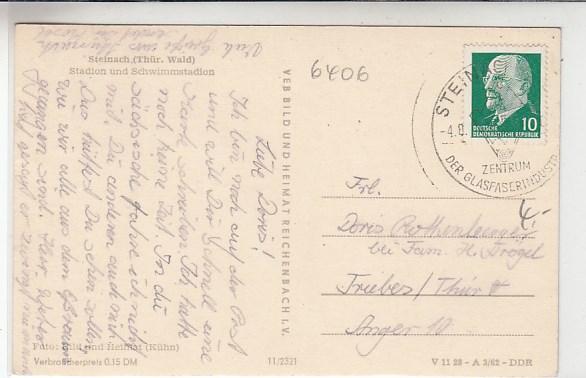 Viele Grüße aus Steinach
Steinach (Thür. Wald)
Stadion und Schwimmstadion
6406
Liebe Doris!
Ich bin noch auf der Post
und will Dir schnell eine
Karte schreiben. Ich hatte
noch keine Zeit. In die
sächsische fahre ich nicht
mit. Du anderen auch nicht
Du hättest Du sehn sollen
wie wir alle aus dem
gegangen sind. Herr
Foto: Bild und Heimat (Kühn)
Verbraucherpreis 0,15 DM
VEB BILD UND HEIMAT REICHENBACH i. V.
11/2321
10
DEUTSCHE
DEMOKRATISCHE REPUBLIK
STEIN
-4.8.
ZENTRUM
DER GLASFASERINDUSTR
4,-
Frl.
Doris
bei Fam. H. Trögel
Triebes/Thür
Anger 10
V 11 28 - A 3/62 - DDR